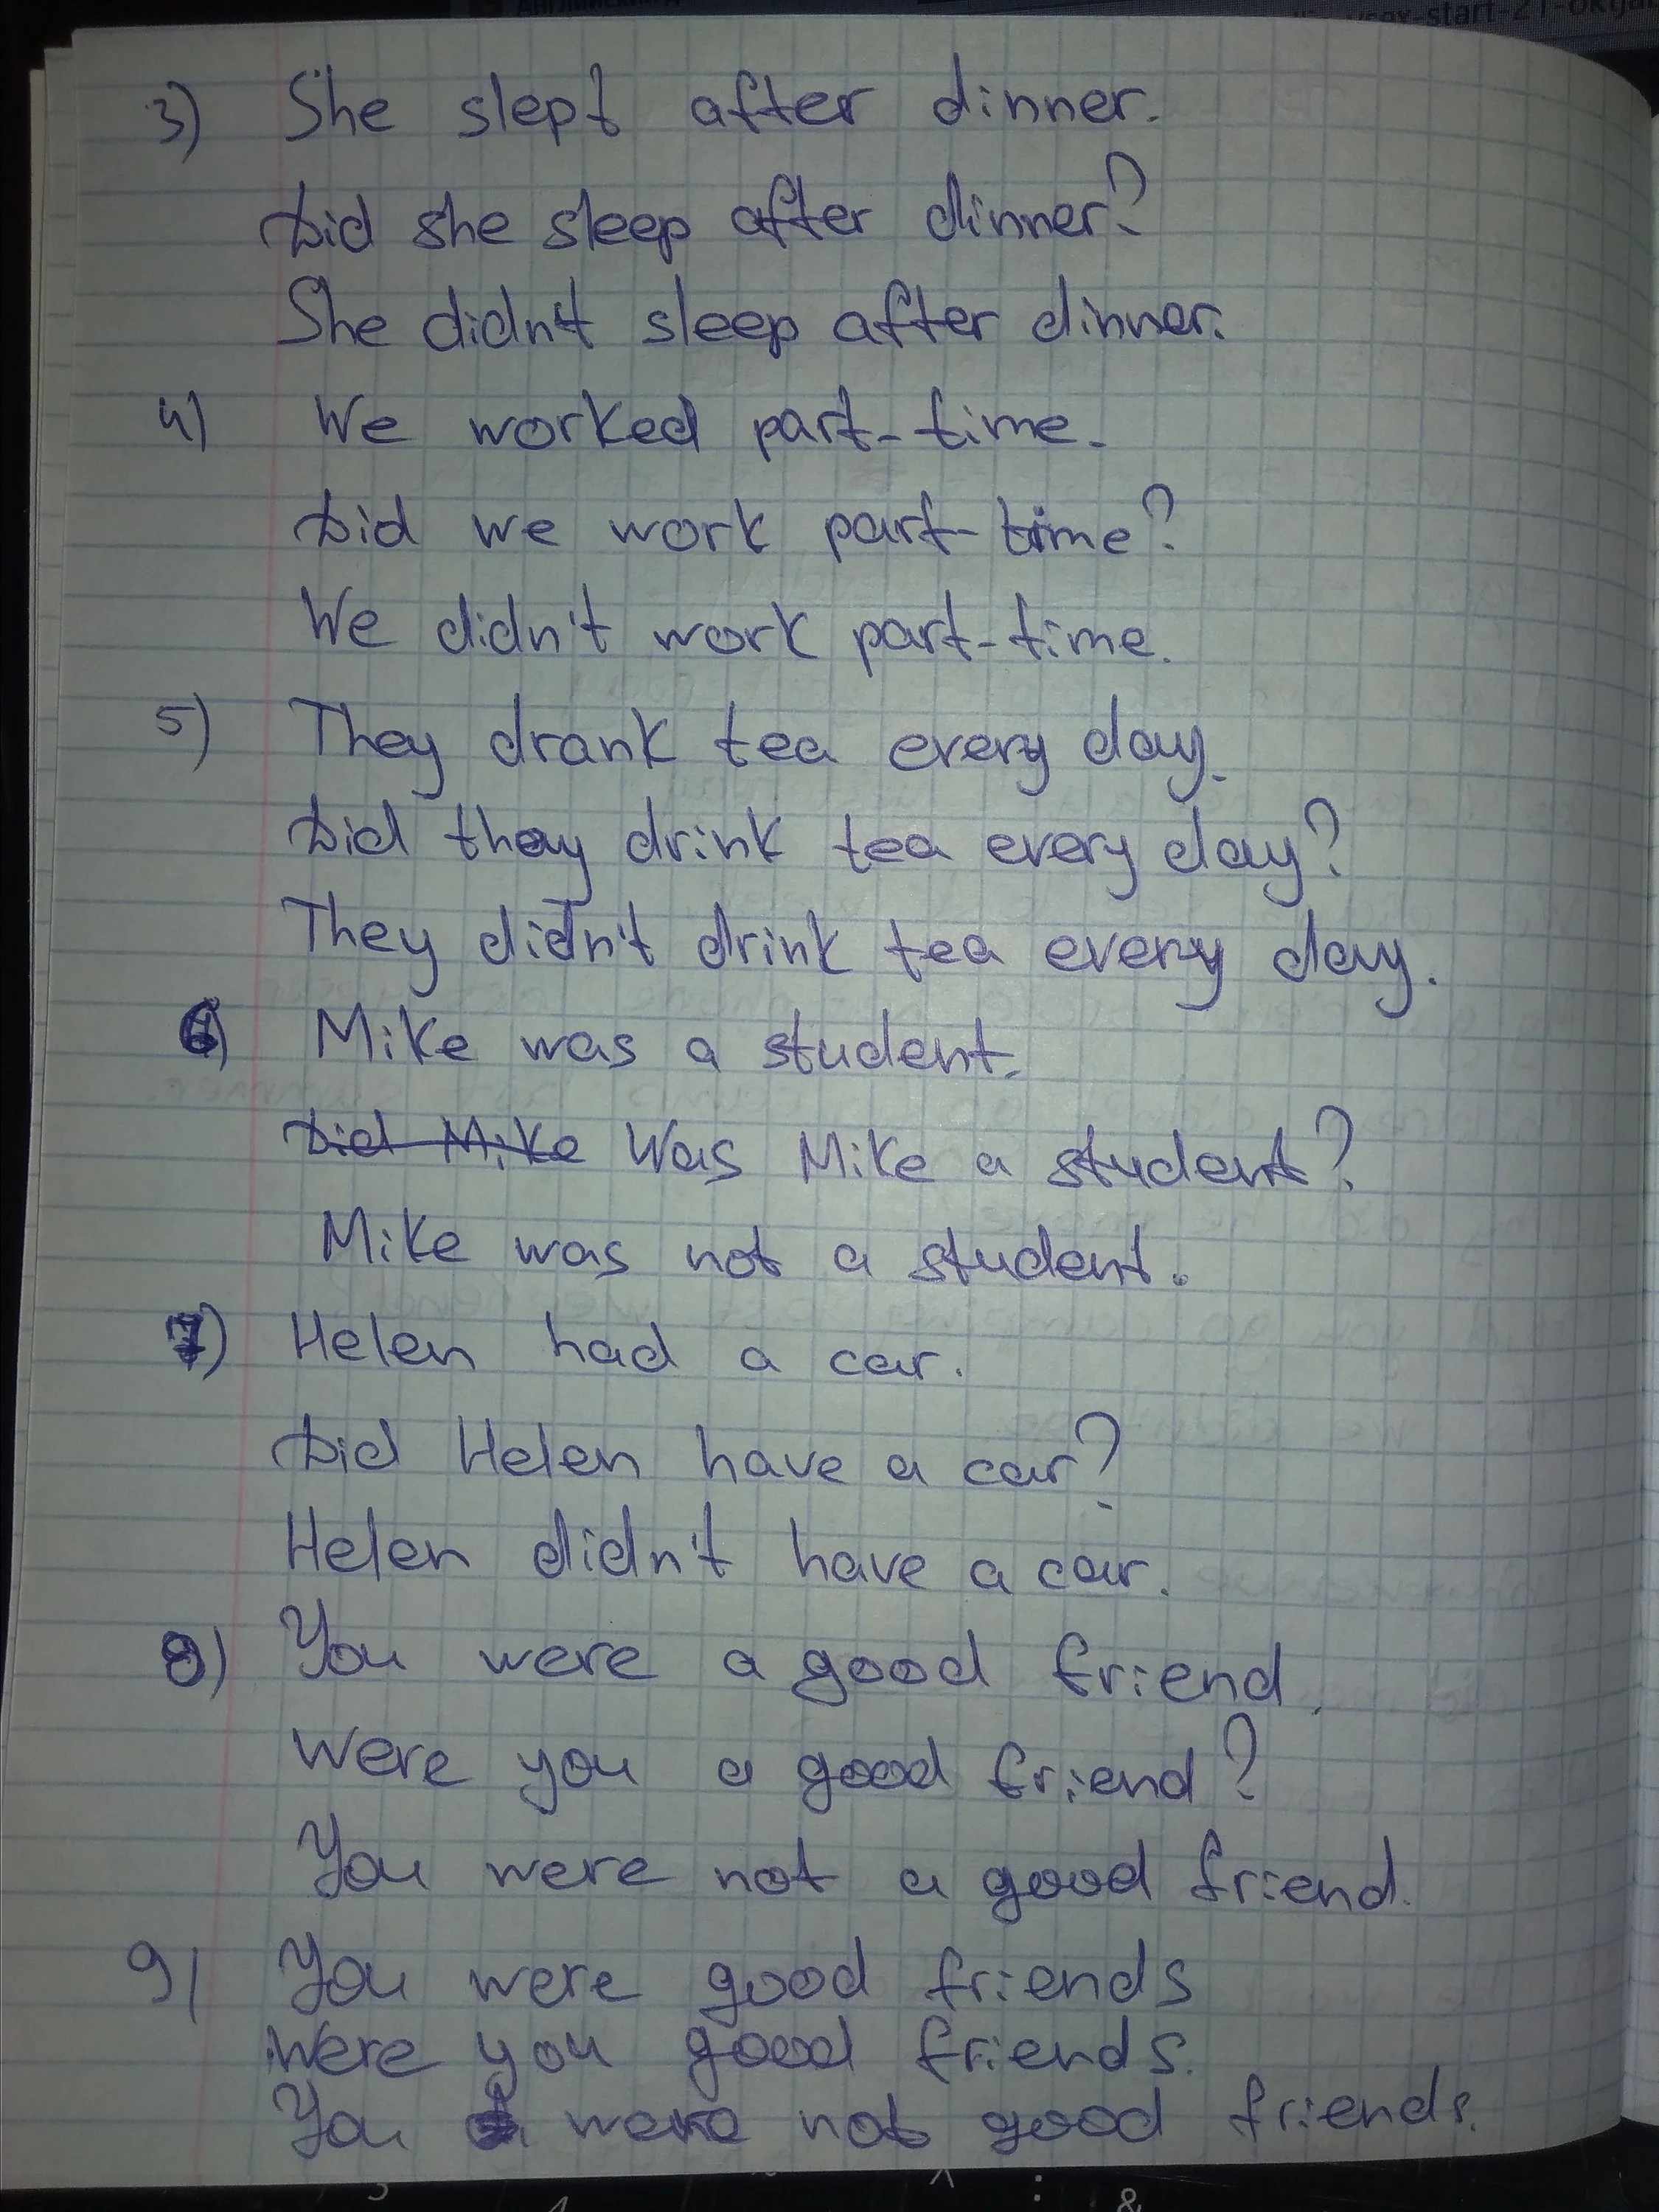 Английский
start-21-oktya
3) She slept after dinner.
Did she sleep after dinner?
She didn't sleep after dinner.
4) We worked part-time.
Did we work part-time?
We didn't work part-time.
5) They drank tea every day.
Did they drink tea every day?
They didn't drink tea every day.
6) Mike was a student.
Did Mike Was Mike a student?
Mike was not a student.
7) Helen had a car.
Did Helen have a car?
Helen didn't have a car.
8) You were a good friend.
Were you a good friend?
You were not a good friend.
9) You were good friends
Were you good friends.
You were not good friends.
&